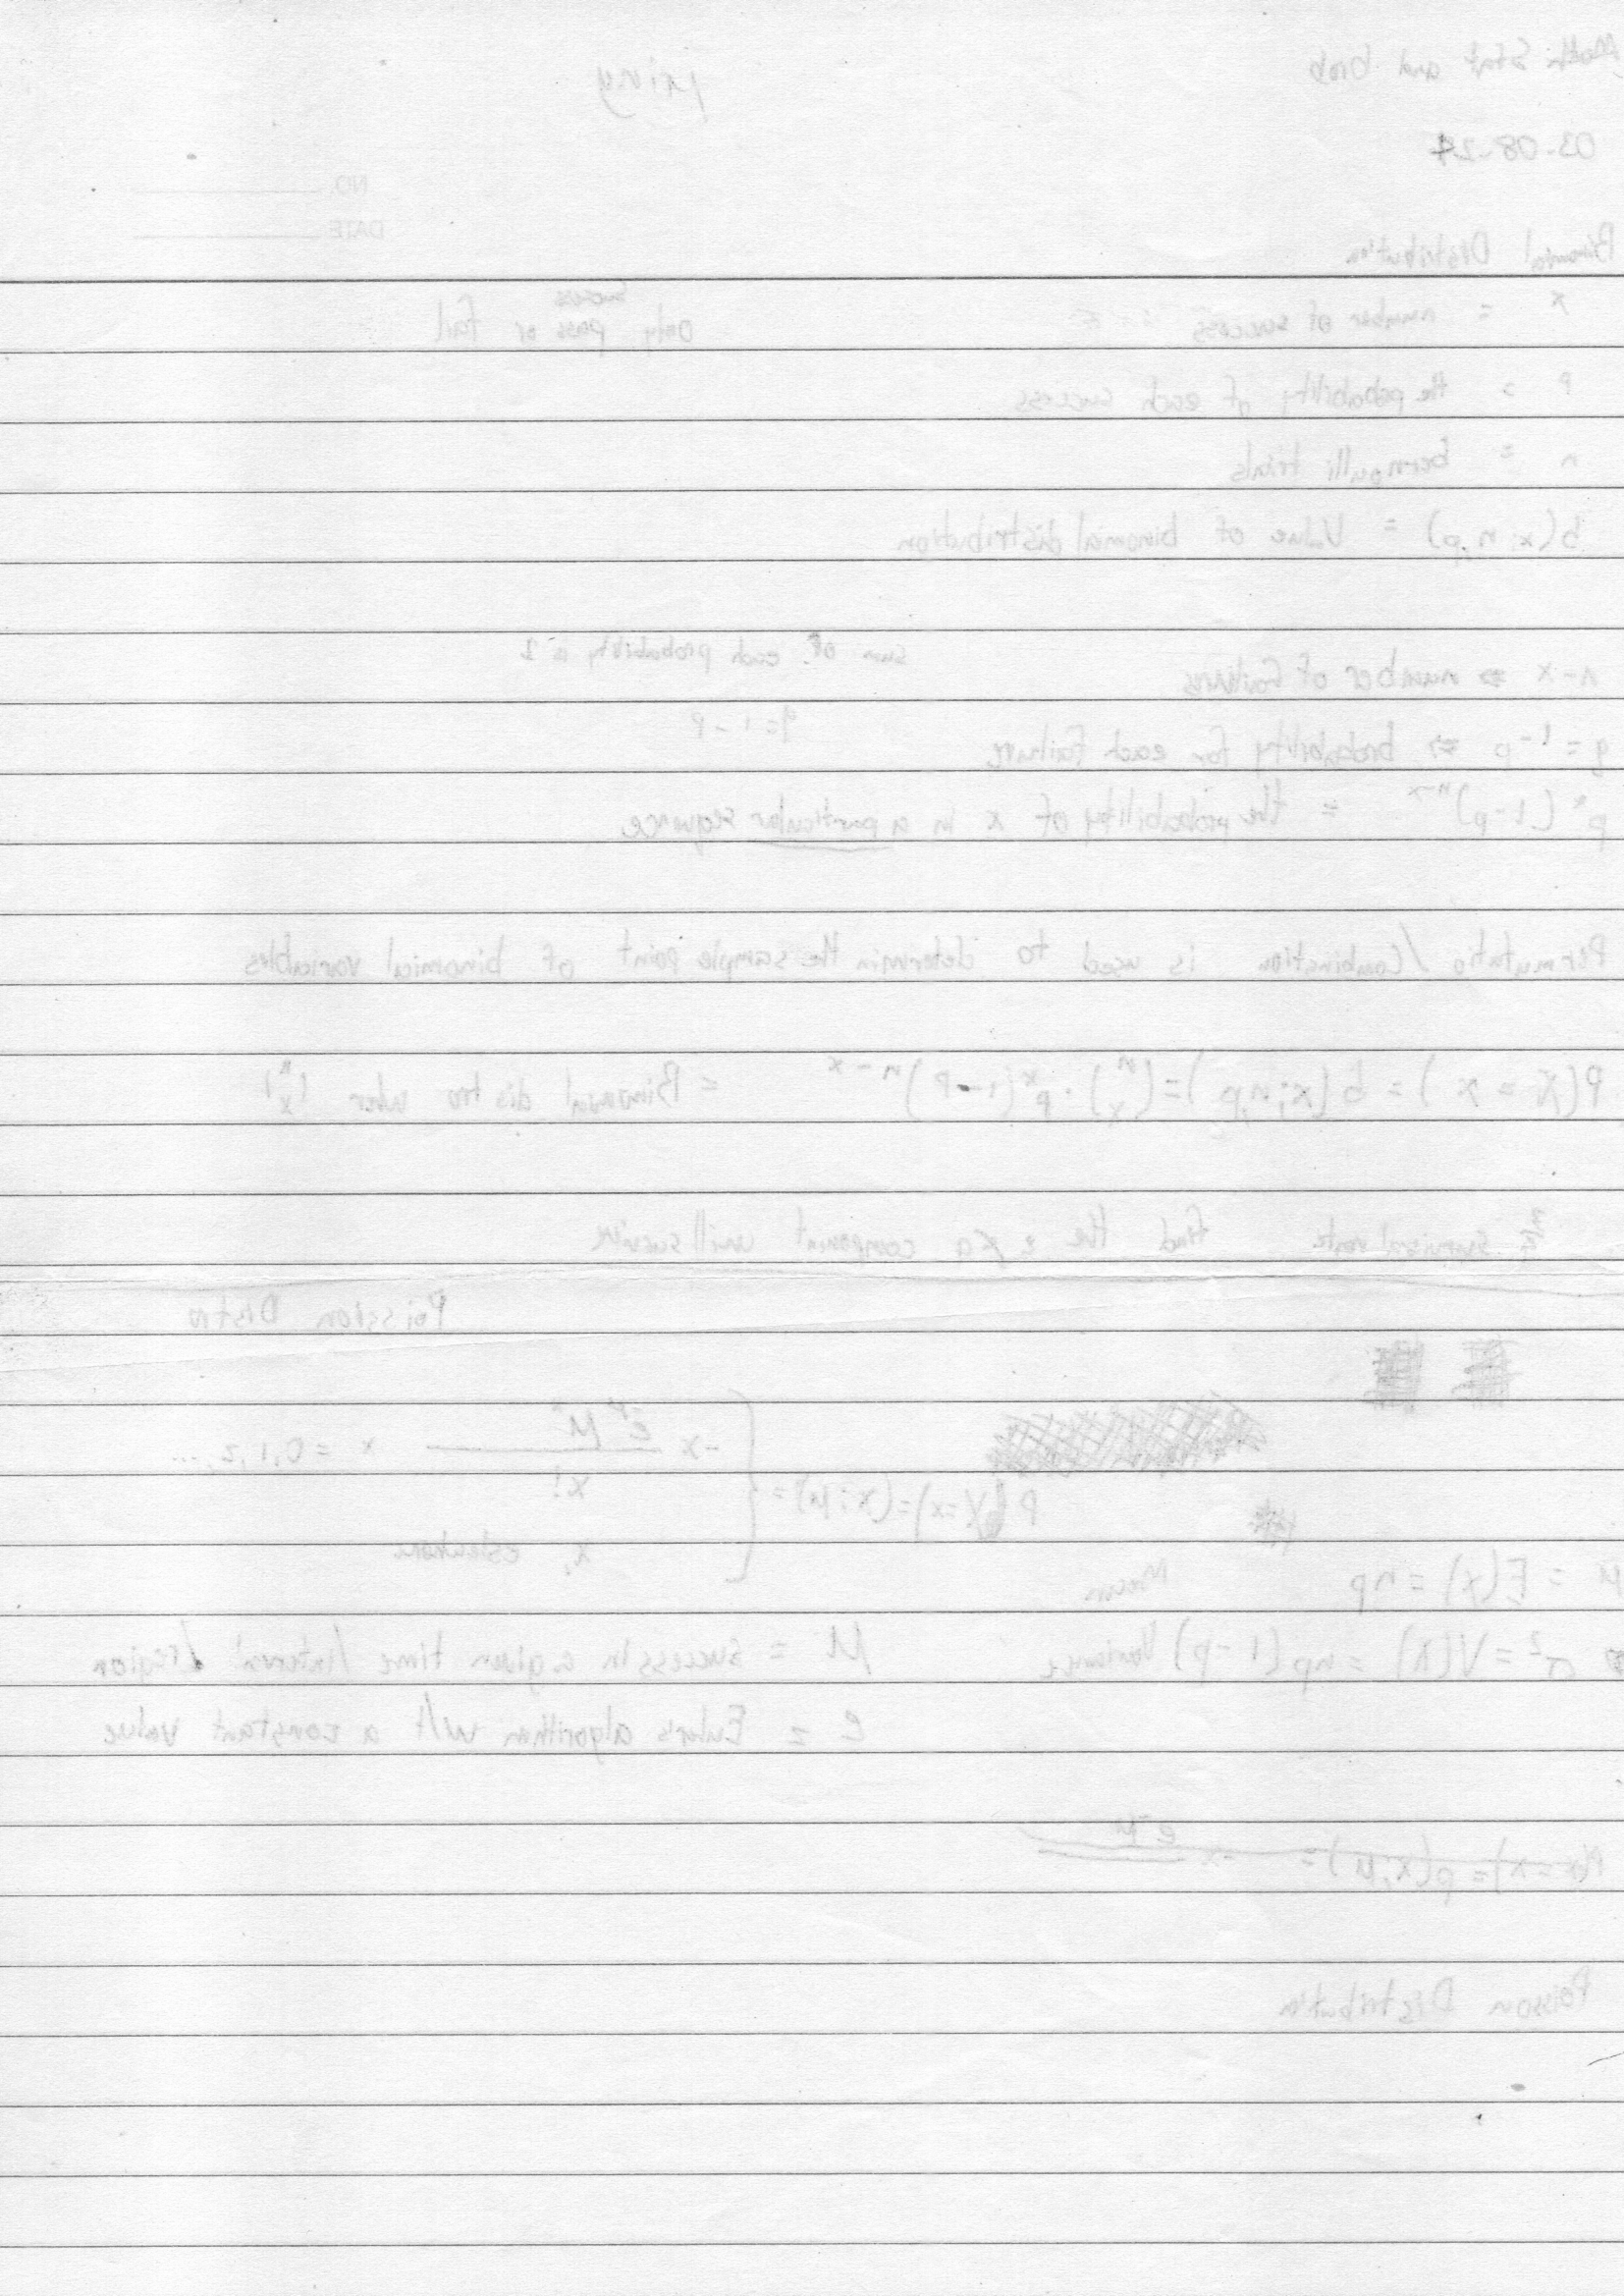 Math Stat and Prob
03-08-24
NO.
DATE
Binomial Distribution
x = number of success only pass or fail
success
p = the probability of each success
n = bernoulli trials
b(x; n,p) = Value of binomial distribution
sum of each probability = 1
n-x => number of failures
q = 1-p
q = 1-p => probability for each failure
p^x (1-p)^n-x = the probability of x in a particular sequence
Permutatio / Combination is used to determin the sample point of binomial variables
P(X = x) = b(x; n,p) = (n x) · p^x (1-p)^n-x = Binomial distro wher (n x)
survival rate find the a component will survive
Poission Distro
e^-μ μ^x x = 0,1,2,...
x!
P(X=x)=(x;μ)=
μ = E(x) = np Mean
σ² = V(x) = np(1-p) Variance μ = success in a given time / interval / region
e = Euler's algorithm w/t a constant value
P(X=x)=p(x;μ)= e^-μ
Poisson Distributin